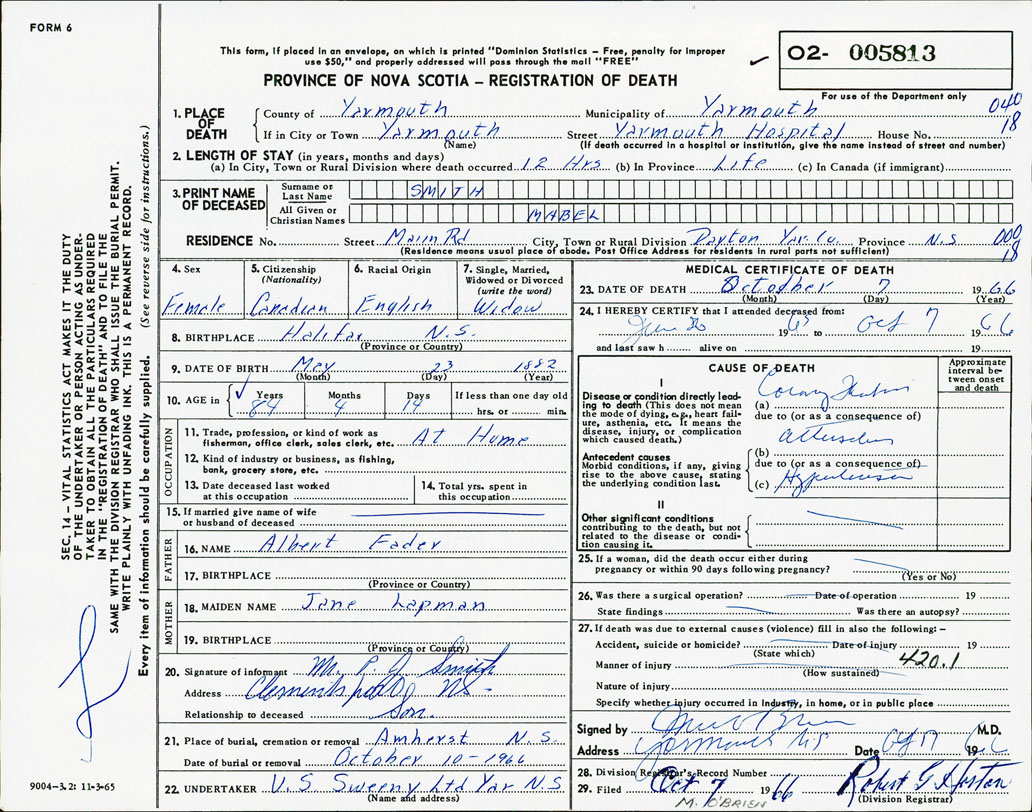 FORM 6
This form, if placed in an envelope, on which is printed "Dominion Statistics – Free, penalty for improper
use $50," and properly addressed will pass through the mail "FREE"
O2- 005813
PROVINCE OF NOVA SCOTIA – REGISTRATION OF DEATH
For use of the Department only
1. PLACE OF DEATH
County of Yarmouth Municipality of Yarmouth 040
If in City or Town Yarmouth Street Yarmouth Hospital House No. 18
(Name) (If death occurred in a hospital or institution, give the name instead of street and number)
2. LENGTH OF STAY (in years, months and days)
(a) In City, Town or Rural Division where death occurred 12 Hrs (b) In Province Life (c) In Canada (if immigrant)
3. PRINT NAME OF DECEASED
Surname or Last Name SMITH
All Given or Christian Names MABEL
RESIDENCE No. Street Main Rd City, Town or Rural Division Dayton Yar. Co. Province N.S 000
(Residence means usual place of abode. Post Office Address for residents in rural parts not sufficient) 18
4. Sex
Female
5. Citizenship
(Nationality)
Canadian
6. Racial Origin
English
7. Single, Married,
Widowed or Divorced
(write the word)
Widow
8. BIRTHPLACE Halifax N.S.
(Province or Country)
9. DATE OF BIRTH May 23 1882
(Month) (Day) (Year)
10. AGE in Years Months Days If less than one day old
84 4 14 hrs. or min.
OCCUPATION
11. Trade, profession, or kind of work as
fisherman, office clerk, sales clerk, etc. At Home
12. Kind of industry or business, as fishing,
bank, grocery store, etc.
13. Date deceased last worked
at this occupation
14. Total yrs. spent in
this occupation
15. If married give name of wife
or husband of deceased
FATHER
16. NAME Albert Fader
17. BIRTHPLACE
(Province or Country)
MOTHER
18. MAIDEN NAME Jane Lapman
19. BIRTHPLACE
(Province or Country)
20. Signature of informant Mr. P. J. Smith
Address Clementsport NS
Relationship to deceased Son.
21. Place of burial, cremation or removal Amherst N.S.
Date of burial or removal October 10-1966
22. UNDERTAKER V.S. Sweeny Ltd Yar N.S
(Name and address)
MEDICAL CERTIFICATE OF DEATH
23. DATE OF DEATH October 7 1966
(Month) (Day) (Year)
24. I HEREBY CERTIFY that I attended deceased from:
19 to Oct 7 1966
and last saw h alive on 19
CAUSE OF DEATH
Approximate
interval be-
tween onset
and death
I
Disease or condition directly lead-
ing to death (This does not mean
the mode of dying, e.g., heart fail-
ure, asthenia, etc. It means the
disease, injury, or complication
which caused death.)
(a)
due to (or as a consequence of)
Antecedent causes
Morbid conditions, if any, giving
rise to the above cause, stating
the underlying condition last.
(b)
due to (or as a consequence of)
(c) Hypertension
II
Other significant conditions
contributing to the death, but not
related to the disease or condi-
tion causing it.
25. If a woman, did the death occur either during
pregnancy or within 90 days following pregnancy?
(Yes or No)
26. Was there a surgical operation? Date of operation 19
State findings Was there an autopsy?
27. If death was due to external causes (violence) fill in also the following: –
Accident, suicide or homicide? Date of injury 19
(State which) 420.1
Manner of injury
(How sustained)
Nature of injury
Specify whether injury occurred in Industry, in home, or in public place
Signed by M.D.
Address Yarmouth NS Date Oct 7 1966
28. Division Registrar's Record Number
29. Filed Oct 7 1966 Robert G Horton
(Division Registrar)
M. O'BRIEN
SEC. 14 – VITAL STATISTICS ACT MAKES IT THE DUTY
OF THE UNDERTAKER OR PERSON ACTING AS UNDER-
TAKER TO OBTAIN ALL THE PARTICULARS REQUIRED
IN THE "REGISTRATION OF DEATH" AND TO FILE THE
SAME WITH THE DIVISION REGISTRAR WHO SHALL ISSUE THE BURIAL PERMIT.
WRITE PLAINLY WITH UNFADING INK. THIS IS A PERMANENT RECORD.
Every item of information should be carefully supplied. (See reverse side for instructions.)
9004-3.2: 11-3-65